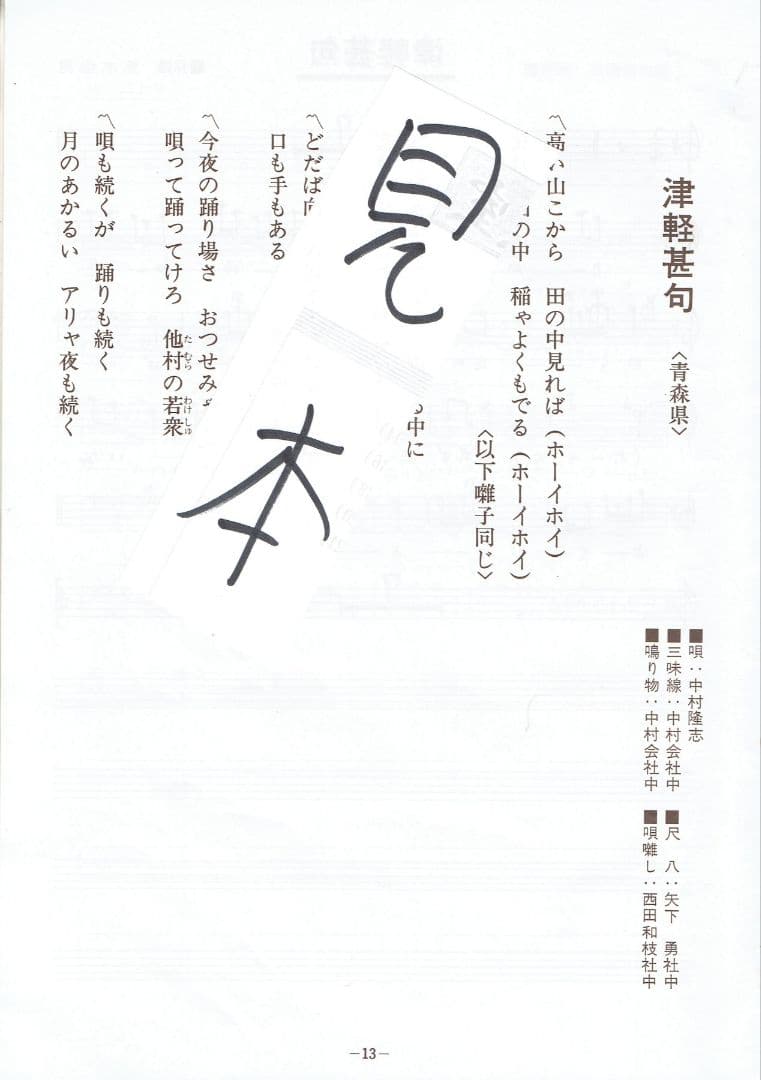 津軽甚句 〈青森県〉
■唄：中村隆志
■三味線：中村会社中
■鳴り物：中村会社中
■尺 八：矢下 勇社中
■唄囃し：西田和枝社中
〽高い山こから 田の中見れば（ホーイホイ）
の中 稲ゃよくもてる（ホーイホイ）
〈以下囃子同じ〉
中に
〽どだば
口も手もある
〽今夜の踊り場さ おつせみ
唄って踊ってけろ 他村の若衆
たむら わけしゅ
〽唄も続くが 踊りも続く
月のあかるい アリャ夜も続く
見
本
—13—